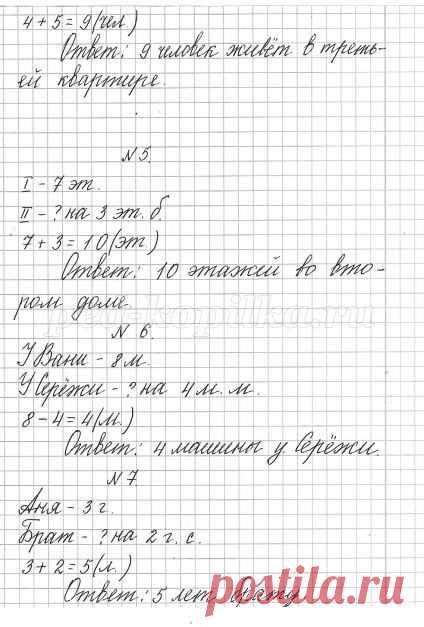 4 + 5 = 9 (чел)
Ответ: 9 человек живёт в треть-
ей квартире.
N 5.
I - 7 эт.
II - ? на 3 эт. б.
7 + 3 = 10 (эт.)
Ответ: 10 этажей во вто-
ром доме.
ped-kopilka.ru
N 6.
У Вани - 8 м.
У Серёжи - ? на 4 м. м.
8 - 4 = 4 (м.)
Ответ: 4 машины у Серёжи.
N 7
Аня - 3 г.
Брат - ? на 2 г. с.
3 + 2 = 5 (л.)
Ответ: 5 лет брату
postila.ru